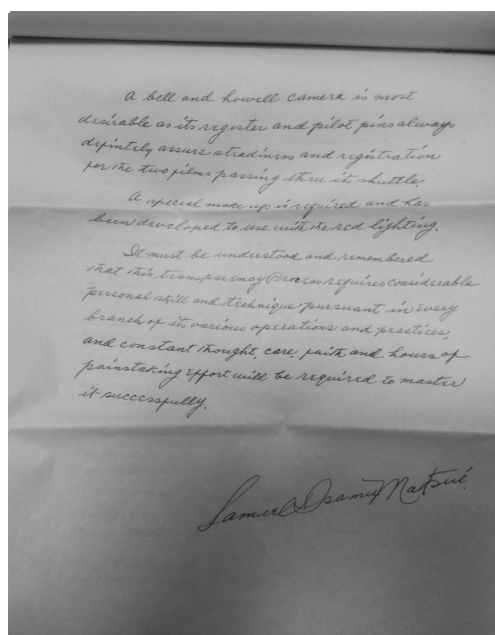 A bell and howell camera is most
desirable as its register and pilot pins always
defintely assure steadiness and registration
for the two films passing thru it shuttle.
A special make up is required and has
been developed to use with the red lighting.
It must be understood and remembered
that this transparency Process requires considerable
personal skill and technique pursuant in every
branch of its various operations and practices,
and constant thought, care, faith and hours of
painstaking effort will be required to master
it successfully.
Samuel Osamu Matsui.